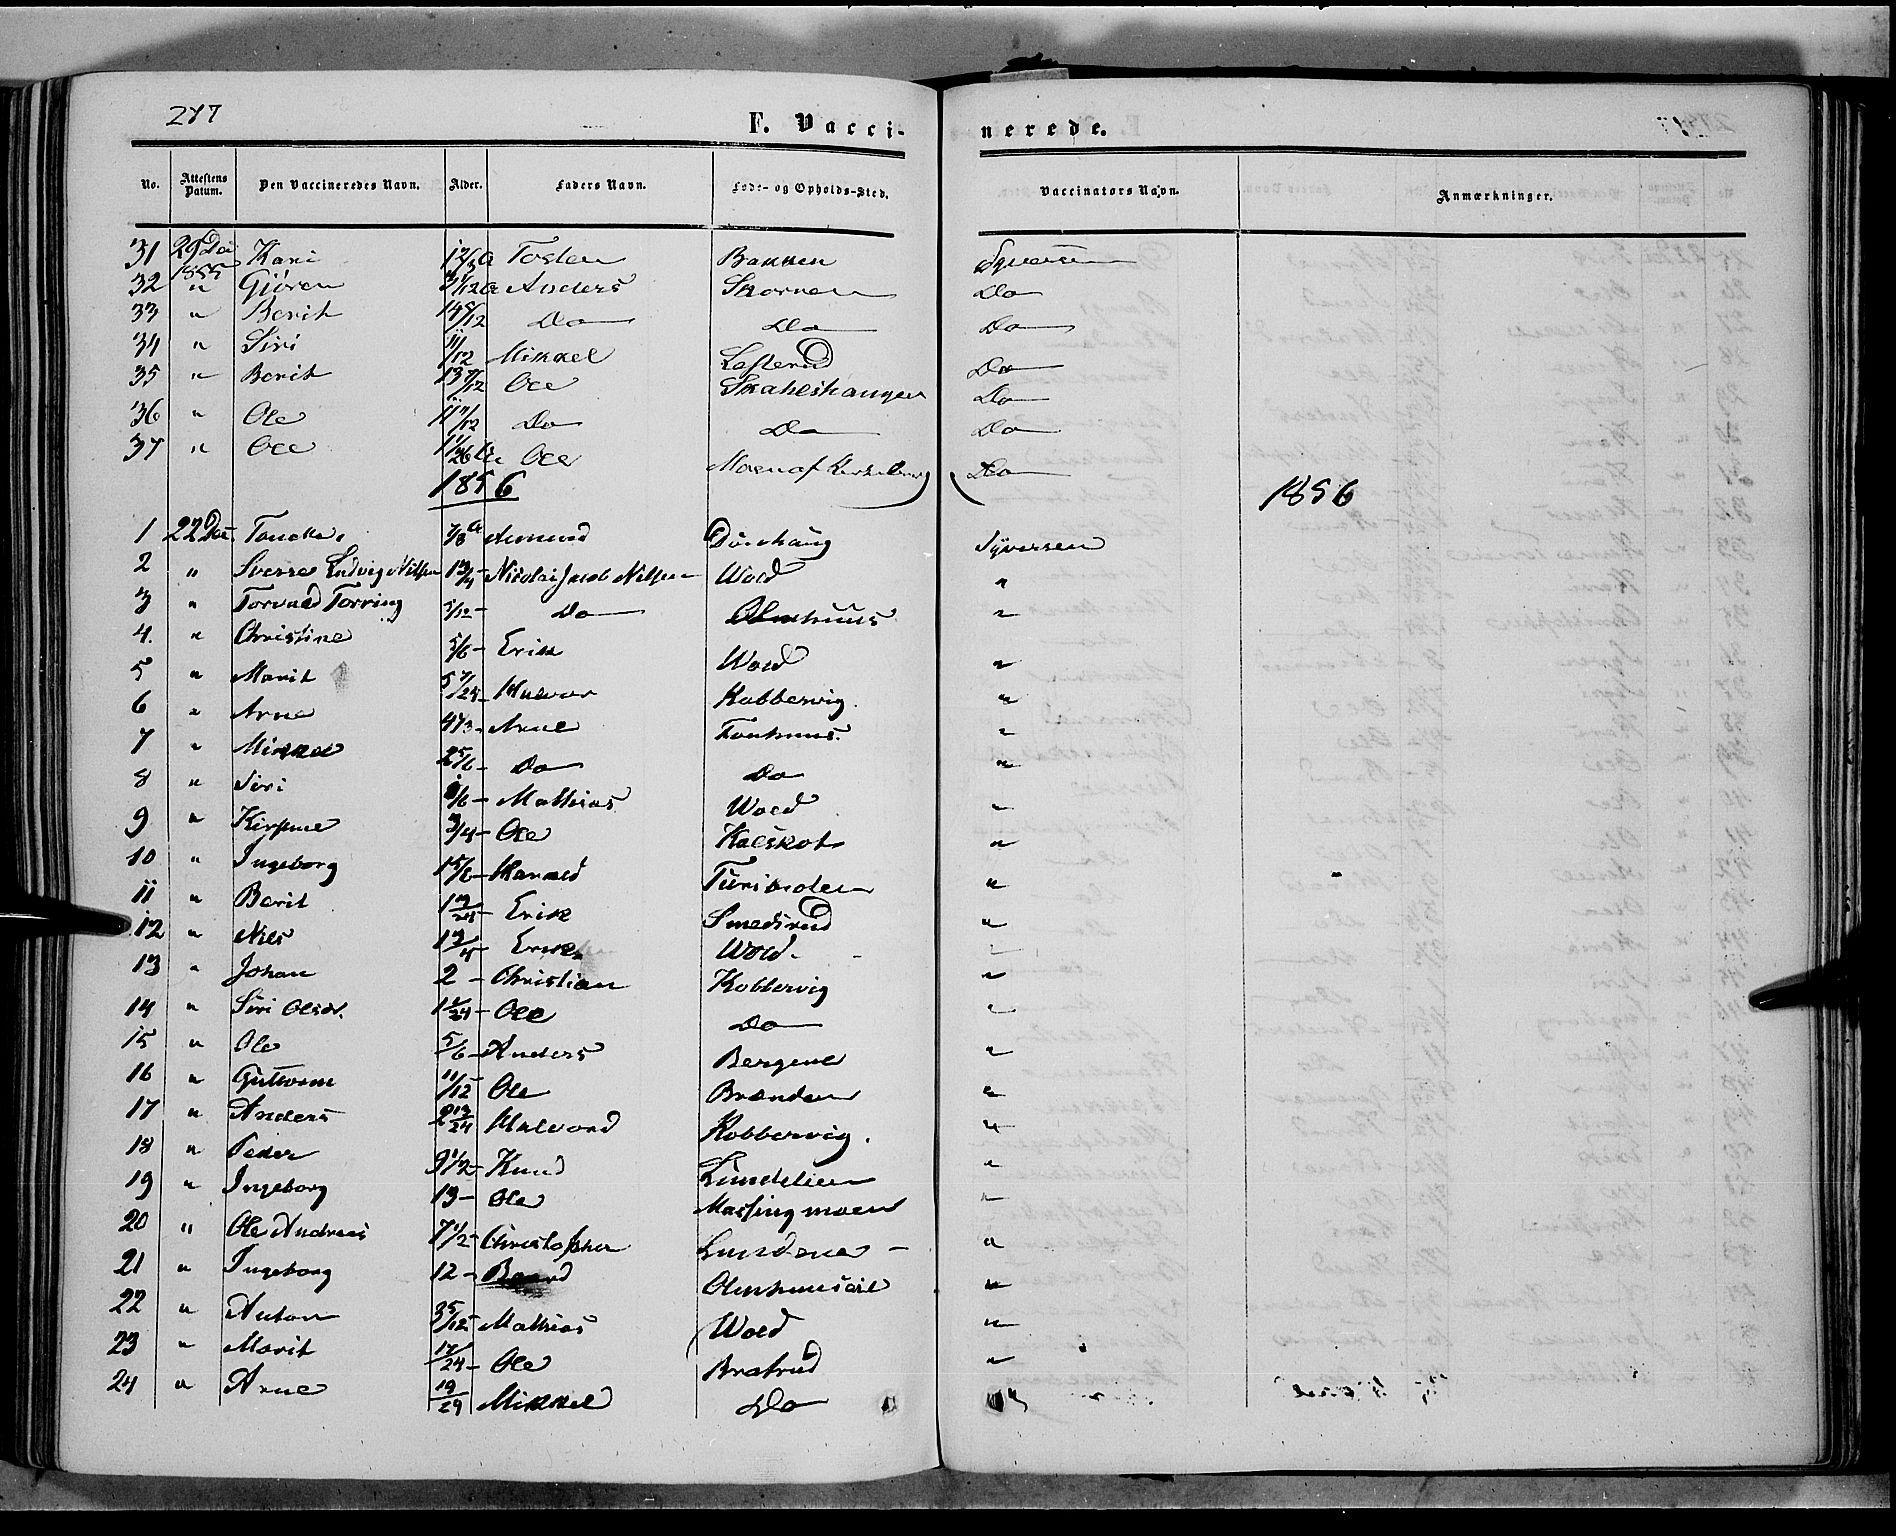 247
F. Vacci- nerede.
No. Attestens Datum. Den Vaccineredes Navn. Alder. Faders Navn. Føde- og Opholds-Sted. Vaccinators Navn. Anmærkninger.
31 29 Dec 1855 Kari Tosten Bakken Syversen
32 " Gjören Anders Skornen Do
33 " Berit 14 5/12 Do Do Do
34 " Siri 11/12 Mikkel Do
35 " Berit 13 7/12 Ole Do
36 " Ole 11 7/12 Do Do Do
37 " Ole Ole Moen af Do
1856 1856
1 22 Dec. 7/8 a Amund Syversen
2 " Sverre Ludvig Nilsen 1 3/4 - Nicolai Jacob Nilsen Wold "
3 " Torvald Torring 5/12 - Do Olmhuus "
4. " Christine 5/6 - Erik Wold "
5 " Marit 5 7/24 - Halvor Kobbervig. "
6 " Arne 4 1/3 - Arne Tonhuus. "
7 " Mikkel 2 5/6 - Do Do "
8 " Siri 1/6 - Mathias Wold "
9 " Kirstine 3/4 - Ole Kalskot "
10 " Ingeborg 1 5/6 - Harald "
11 " Berit Erik Smedsrud "
12 " Nils 1 3/4 - Erik Wold - "
13 " Johan 2 - Christian Kobbervig "
14 " Siri Olsdr. Ole Do "
15 " Ole 5/6 - Anders Bergene "
16 " Guttorm 11/12 Ole Brænden "
17 " Anders 2 13/24 Halvord Kobbervig. "
18 " Peder 9 1/2 - Knud Lundelien "
19 " Ingeborg 13 - Ole Massingmoen "
20 " Ole Andreas 7 1/2 - Christopher Lundene - "
21 " Ingeborg 12 - Baard "
22 " Anton 3 5/12 - Mathias Wold "
23 " Marit 17/24 - Ole Bratrud "
24 " Arne 19/24 Mikkel Do